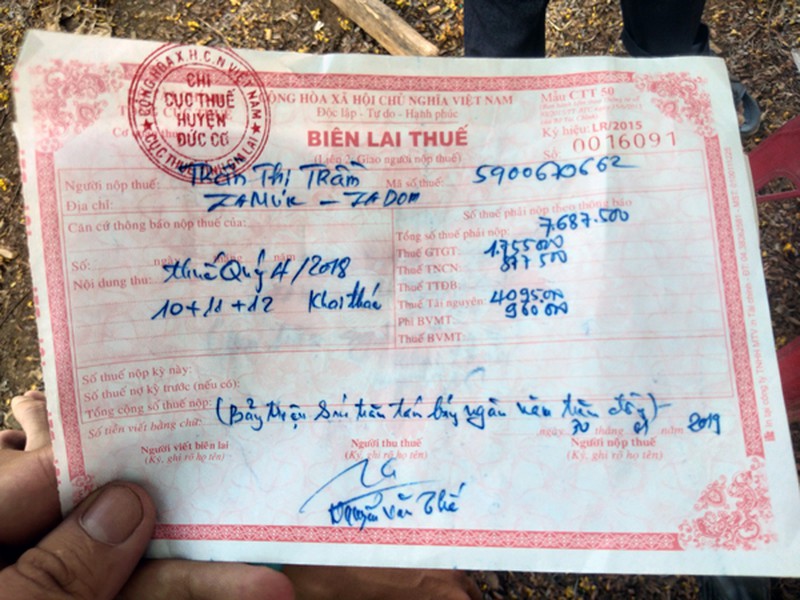 CỘNG HÒA X.H.C.N VIỆT NAM
CHI
CỤC THUẾ
HUYỆN
ĐỨC CƠ
CỘNG HÒA XÃ HỘI CHỦ NGHĨA VIỆT NAM
Độc lập - Tự do - Hạnh phúc
Mẫu CTT 50
Ký hiệu: LR/2015
BIÊN LAI THUẾ
Số: 0016091
(Liên 2: Giao người nộp thuế)
Người nộp thuế: Thị Trầm Mã số thuế: 5900670662
Địa chỉ: - IADOM
Căn cứ thông báo nộp thuế của:
Số: ngày tháng năm
Nội dung thu: thuế Quý 4/2018
10+11+12 Khai thác
Số thuế phải nộp theo thông báo
Tổng số thuế phải nộp: 7.687.500
Thuế GTGT: 1.755000
Thuế TNCN: 877500
Thuế TTĐB:
Thuế Tài nguyên: 4095.000
Phí BVMT: 960000
Thuế BVMT:
Số thuế nộp kỳ này:
Số thuế nợ kỳ trước (nếu có):
Tổng cộng số thuế nộp:
Số tiền viết bằng chữ: (Bảy triệu Sáu trăm tám bảy ngàn năm trăm đồng)
ngày 30 tháng 01 năm 2019
Người viết biên lai
(Ký, ghi rõ họ tên)
Người thu thuế
(Ký, ghi rõ họ tên)
Người nộp thuế
(Ký, ghi rõ họ tên)
Nguyễn Văn Thế